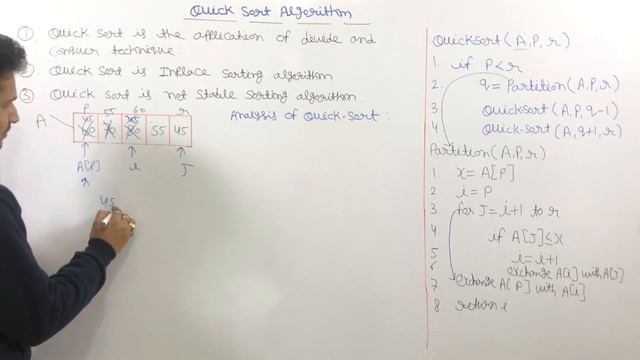 Quick Sort Algorithm
① Quick Sort is the application of divide and
conquer technique.
② Quick Sort is Inplace Sorting algorithm
③ Quick Sort is not Stable Sorting algorithm.
P 55 60 r
A 45 45 55 45
A[P] i J
45
Analysis of Quick-Sort :
Quicksort(A, P, r)
1. if P<r
2 q = Partition(A, P, r)
3 Quicksort(A, P, q-1)
4 Quick-Sort(A, q+1, r)
Partition(A, P, r)
1 x = A[P]
2. i = P
3. for J = i+1 to r
4 if A[J] ≤ x
5 i = i+1
6 exchange A[i] with A[J]
7. exchange A[P] with A[i]
8. return i